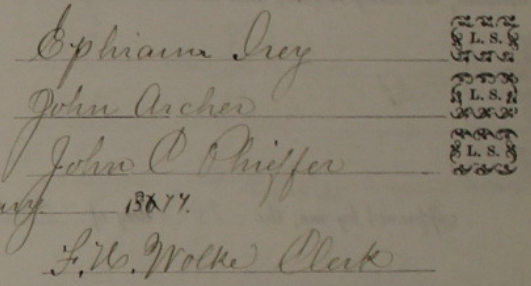 Ephraim Irey L. S.
John Archer L. S.
John C Phieffer L. S.
1877.
F. W. Wolke Clerk